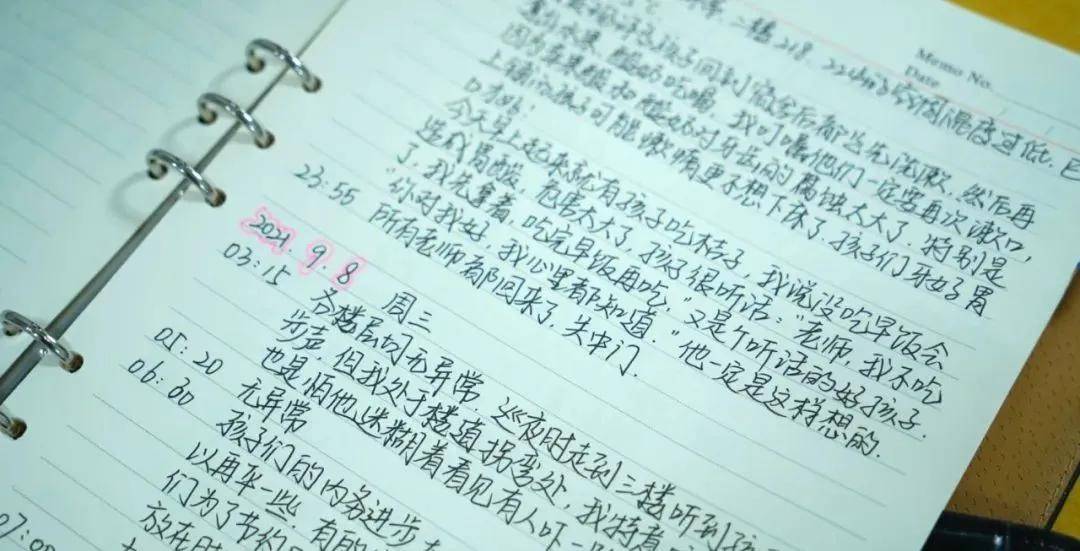 Memo No.
Date
二楼218、224宿舍空调温度过低,已
孩子回到宿舍后都先洗漱,然后再
吃水果,能吃喝,我叮嘱他们一定要再次漱口,
因为果酸和糖对牙齿的腐蚀太大了,特别是
上铺的孩子可能嫌麻烦更不想下床了,孩子们牙好胃
口才好!
今天早上起来就有孩子吃桔子,我说没吃早饭会
造成胃酸,危害太大了,孩子很听话:"老师,我不吃
了,我先拿着,吃完早饭再吃,"又是个听话的好孩子.
"你对我好,我心里都知道."他一定是这样想的.
23:55 所有老师都回来了,关中门.
2021.9.8 周三
03:15 各楼层均无异常 巡夜时走到三楼听到孩
步声,但我处于楼道拐弯处,我持着
也是怕他迷糊着看见有人吓一
05:20 无异常
06:00 孩子们的内务进步
以再早一些,有的
们为了节约
07:00 放在